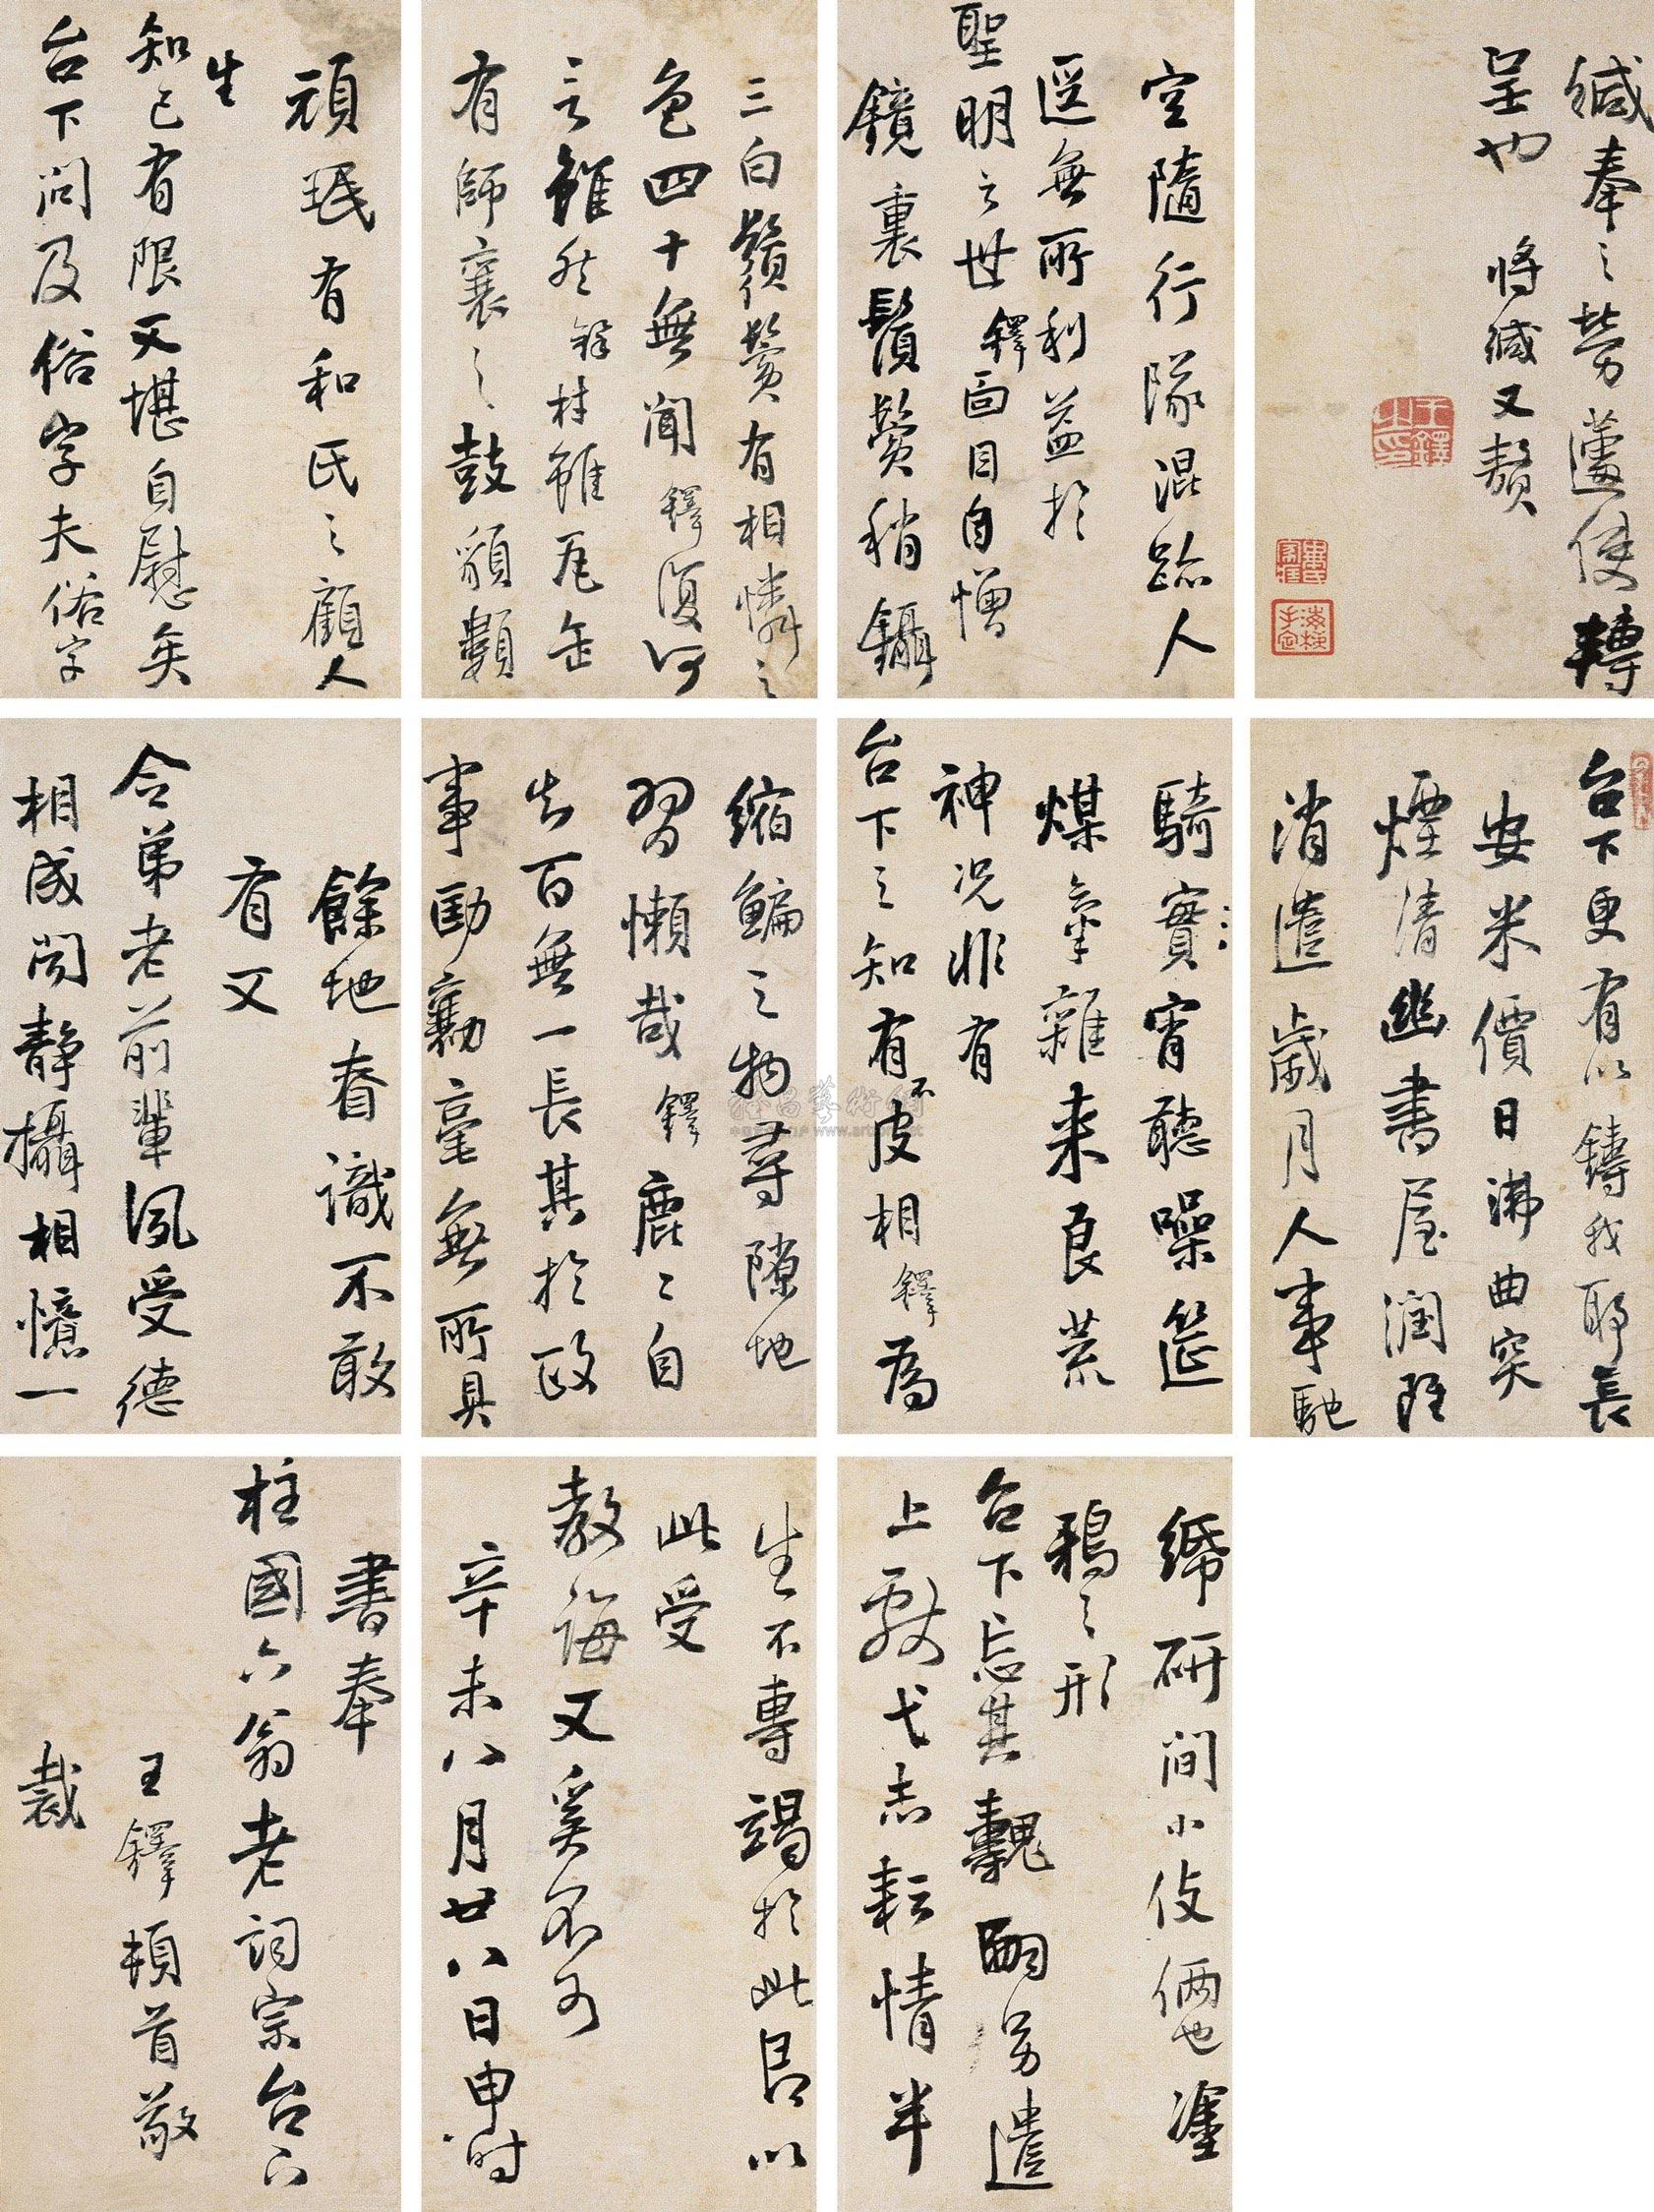 緘奉之勞蘧使轉
呈也 將緘又贅
王鐸之印
空隨行隊混跡人
逕無所利益於
聖明之世鐸面目自憎
鏡裏鬚鬢稍鑷
三白鬚鬢有相憐之
色四十無聞鐸復何
言雖然鐸材雖瓦缶
有師襄之鼓顙類
頑珉有和氏之顧人
生
知己有限又堪自慰矣
台下問及俗字夫俗字
台下更有以鑄我耶長
安米價日沸曲突
煙清幽書屋潤
消遣歲月人事馳
騎實宵聽噪筵
煤氣雜来良荒
神况非有
台下之知有不皮相鐸為
縮鯿之物尋隙地
習懶哉鐸鹿鹿自
百無一長其於政
事勷毫無所具
餘地着識不敢
有又
令弟老前輩夙受德
相成閒靜攝相憶一
研間小伎倆也塗
鴉之形
台下忘其醜嗣另遣
上弋志耘情半
生不專竭於此良以
此受
教誨又奚不可
辛未八月廿八日申時
書奉
柱國六翁老詞宗台下
王鐸頓首敬
裁